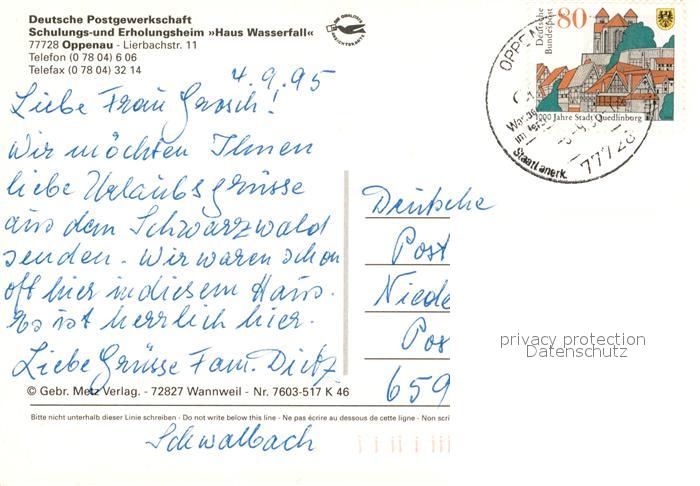 Deutsche Postgewerkschaft
Schulungs-und Erholungsheim »Haus Wasserfall«
77728 Oppenau - Lierbachstr. 11
Telefon (0 78 04) 6 06
Telefax (0 78 04) 32 14
4.9.95
Liebe Frau Grosch!
Wir möchten Ihnen
liebe Urlaubsgrüsse
aus dem Schwarzwald
senden. Wir waren schon
oft hier in diesem Haus.
Es ist herrlich hier.
Liebe Grüsse Fam. Dietz
© Gebr. Metz Verlag. - 72827 Wannweil - Nr. 7603-517 K 46
Bitte nicht unterhalb dieser Linie schreiben - Do not write below this line - Ne pas écrire au dessous de cette ligne - Non scri
Schwalbach
Deutsche
Bundespost
80
1000 Jahre Stadt Quedlinburg
OPPEN
Staatl.anerk.
77728
Deutsche
Post
Niede
Pos
659
privacy protection
Datenschutz